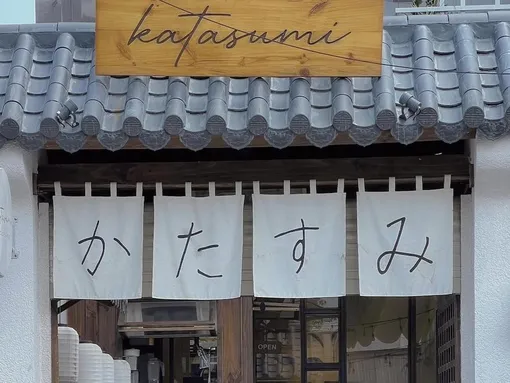 katasumi
かたすみ
OPEN